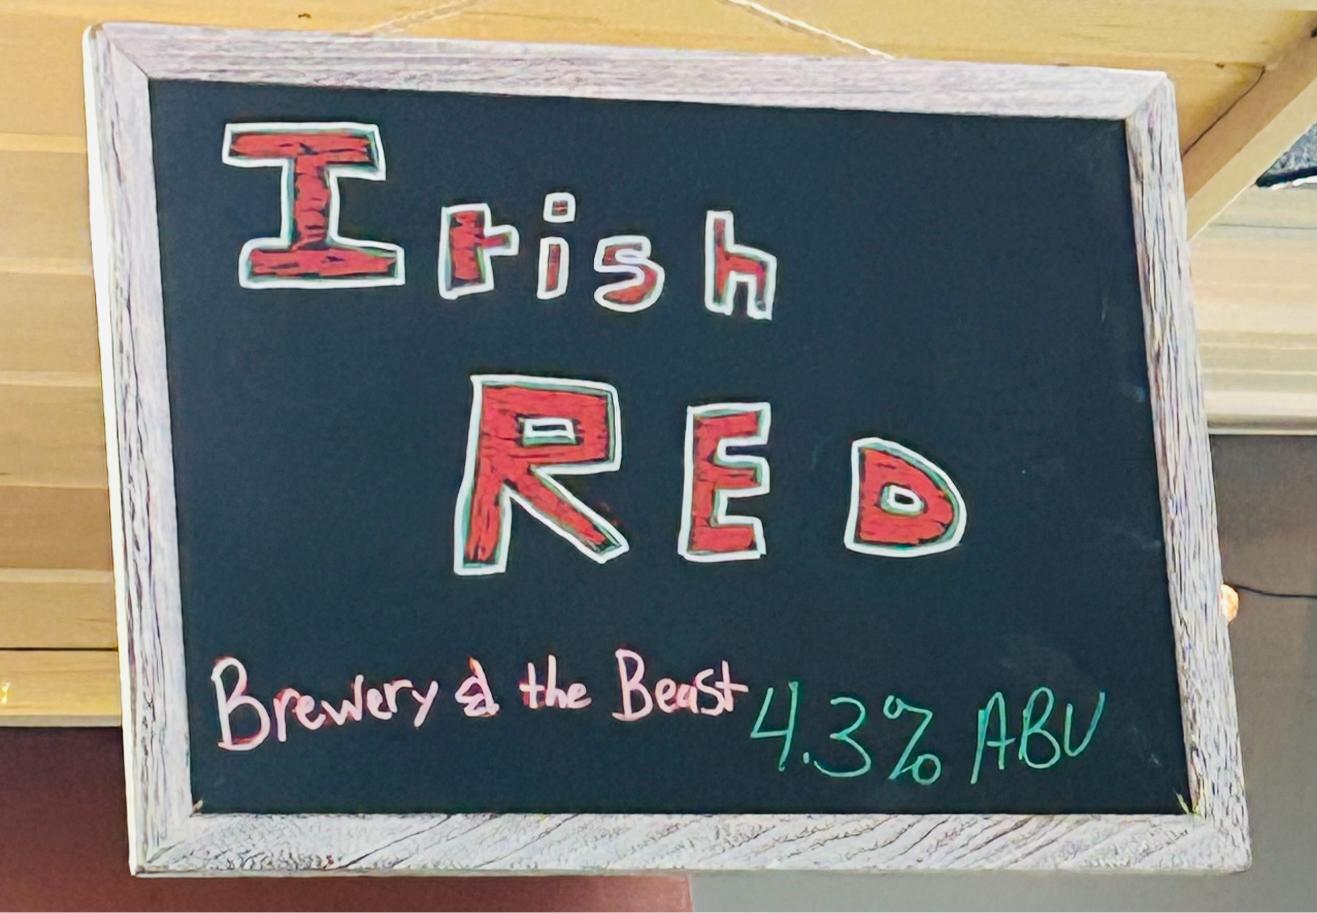 Irish
RED
Brewery & the Beast 4.3% ABV